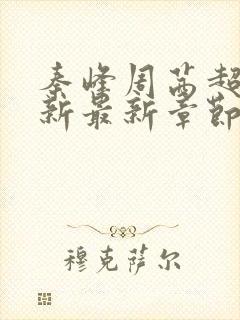 秦峰周茜超
新最新章节
穆克萨尔